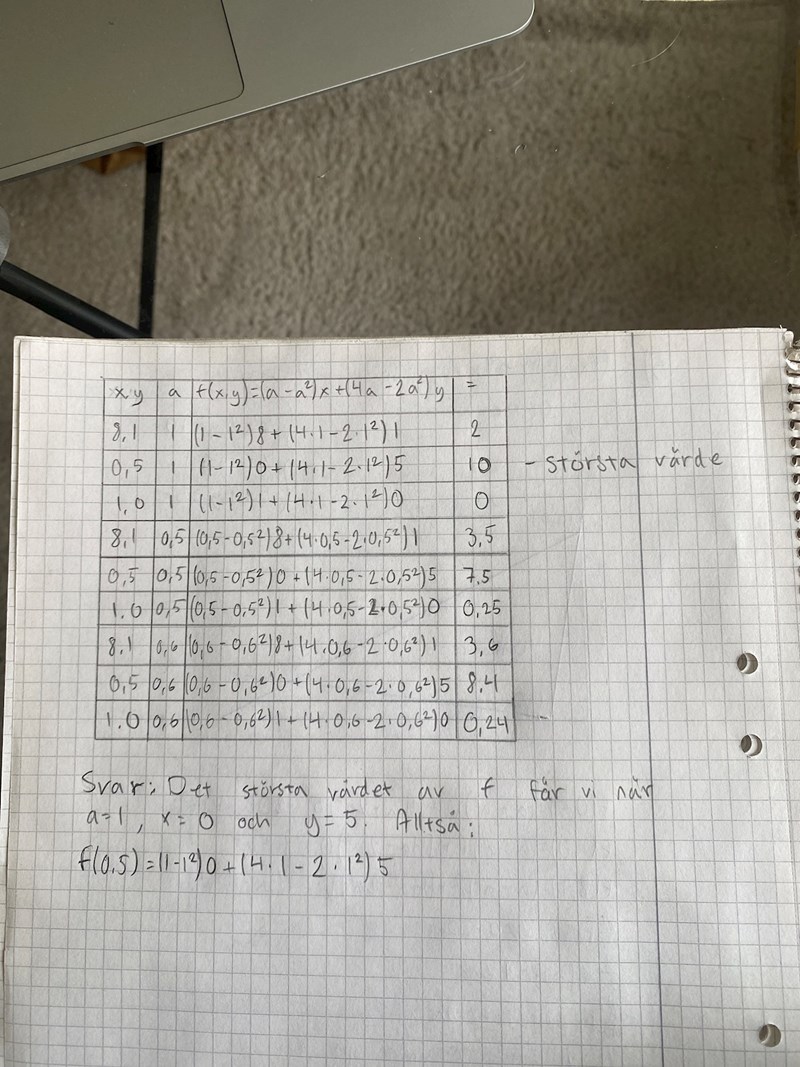 x y a f(x,y)=(a-a²)x+(4a-2a²)y =
8,1 1 (1-1²)8+(4·1-2·1²)1 2
0,5 1 (1-1²)0+(4·1-2·1²)5 10 - största värde
1,0 1 (1-1²)1+(4·1-2·1²)0 0
8,1 0,5 (0,5-0,5²)8+(4·0,5-2·0,5²)1 3,5
0,5 0,5 (0,5-0,5²)0+(4·0,5-2·0,5²)5 7,5
1.0 0,5 (0,5-0,5²)1+(4·0,5-2·0,5²)0 0,25
8.1 0,6 (0,6-0,6²)8+(4·0,6-2·0,6²)1 3,6
0,5 0,6 (0,6-0,6²)0+(4·0,6-2·0,6²)5 8.4
1.0 0,6 (0,6-0,6²)1+(4·0,6-2·0,6²)0 0,24
Svar: Det största värdet av f får vi när
a=1, x=0 och y=5. Alltså:
f(0,5)=(1-1²)0+(4·1-2·1²)5